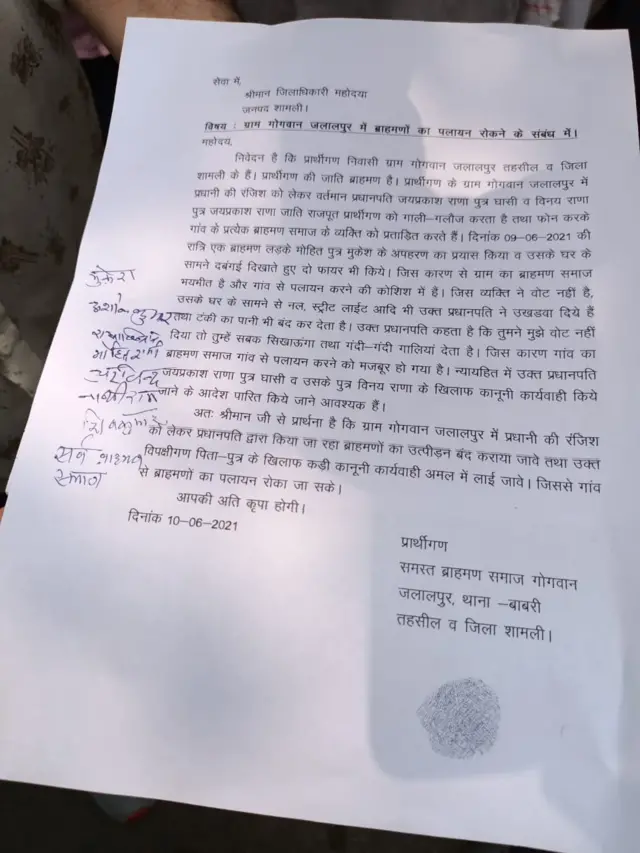 सेवा में,
श्रीमान जिलाधिकारी महोदया
जनपद शामली।
विषय : ग्राम गोगवान जलालपुर में ब्राहमणों का पलायन रोकने के संबंध में।
महोदय,
निवेदन है कि प्रार्थीगण निवासी ग्राम गोगवान जलालपुर तहसील व जिला
शामली के हैं। प्रार्थीगण की जाति ब्राहमण है। प्रार्थीगण के ग्राम गोगवान जलालपुर में
प्रधानी की रंजिश को लेकर वर्तमान प्रधानपति जयप्रकाश राणा पुत्र घासी व विनय राणा
पुत्र जयप्रकाश राणा जाति राजपूत प्रार्थीगण को गाली-गलौज करता है तथा फोन करके
गांव के प्रत्येक ब्राहमण समाज के व्यक्ति को प्रताड़ित करते हैं। दिनांक 09-06-2021 की
रात्रि एक ब्राहमण लड़के मोहित पुत्र मुकेश के अपहरण का प्रयास किया व उसके घर के
सामने दबंगई दिखाते हुए दो फायर भी किये। जिस कारण से ग्राम का ब्राहमण समाज
भयभीत है और गांव से पलायन करने की कोशिश में हैं। जिस व्यक्ति ने वोट नहीं है,
उसके घर के सामने से नल, स्ट्रीट लाईट आदि भी उक्त प्रधानपति ने उखडवा दिये हैं
तथा टंकी का पानी भी बंद कर देता है। उक्त प्रधानपति कहता है कि तुमने मुझे वोट नहीं
दिया तो तुम्हें सबक सिखाऊंगा तथा गंदी-गंदी गालियां देता है। जिस कारण गांव का
ब्राहमण समाज गांव से पलायन करने को मजबूर हो गया है। न्यायहित में उक्त प्रधानपति
जयप्रकाश राणा पुत्र घासी व उसके पुत्र विनय राणा के खिलाफ कानूनी कार्यवाही किये
जाने के आदेश पारित किये जाने आवश्यक हैं।
अतः श्रीमान जी से प्रार्थना है कि ग्राम गोगवान जलालपुर में प्रधानी की रंजिश
को लेकर प्रधानपति द्वारा किया जा रहा ब्राहमणों का उत्पीड़न बंद कराया जावे तथा उक्त
विपक्षीगण पिता-पुत्र के खिलाफ कड़ी कानूनी कार्यवाही अमल में लाई जावे। जिससे गांव
से ब्राहमणों का पलायन रोका जा सके।
आपकी अति कृपा होगी।
दिनांक 10-06-2021
मुकेश
अशोक कुमार
अरविन्द
सर्व ब्राहमण
समाज
प्रार्थीगण
समस्त ब्राहमण समाज गोगवान
जलालपुर, थाना -बाबरी
तहसील व जिला शामली।